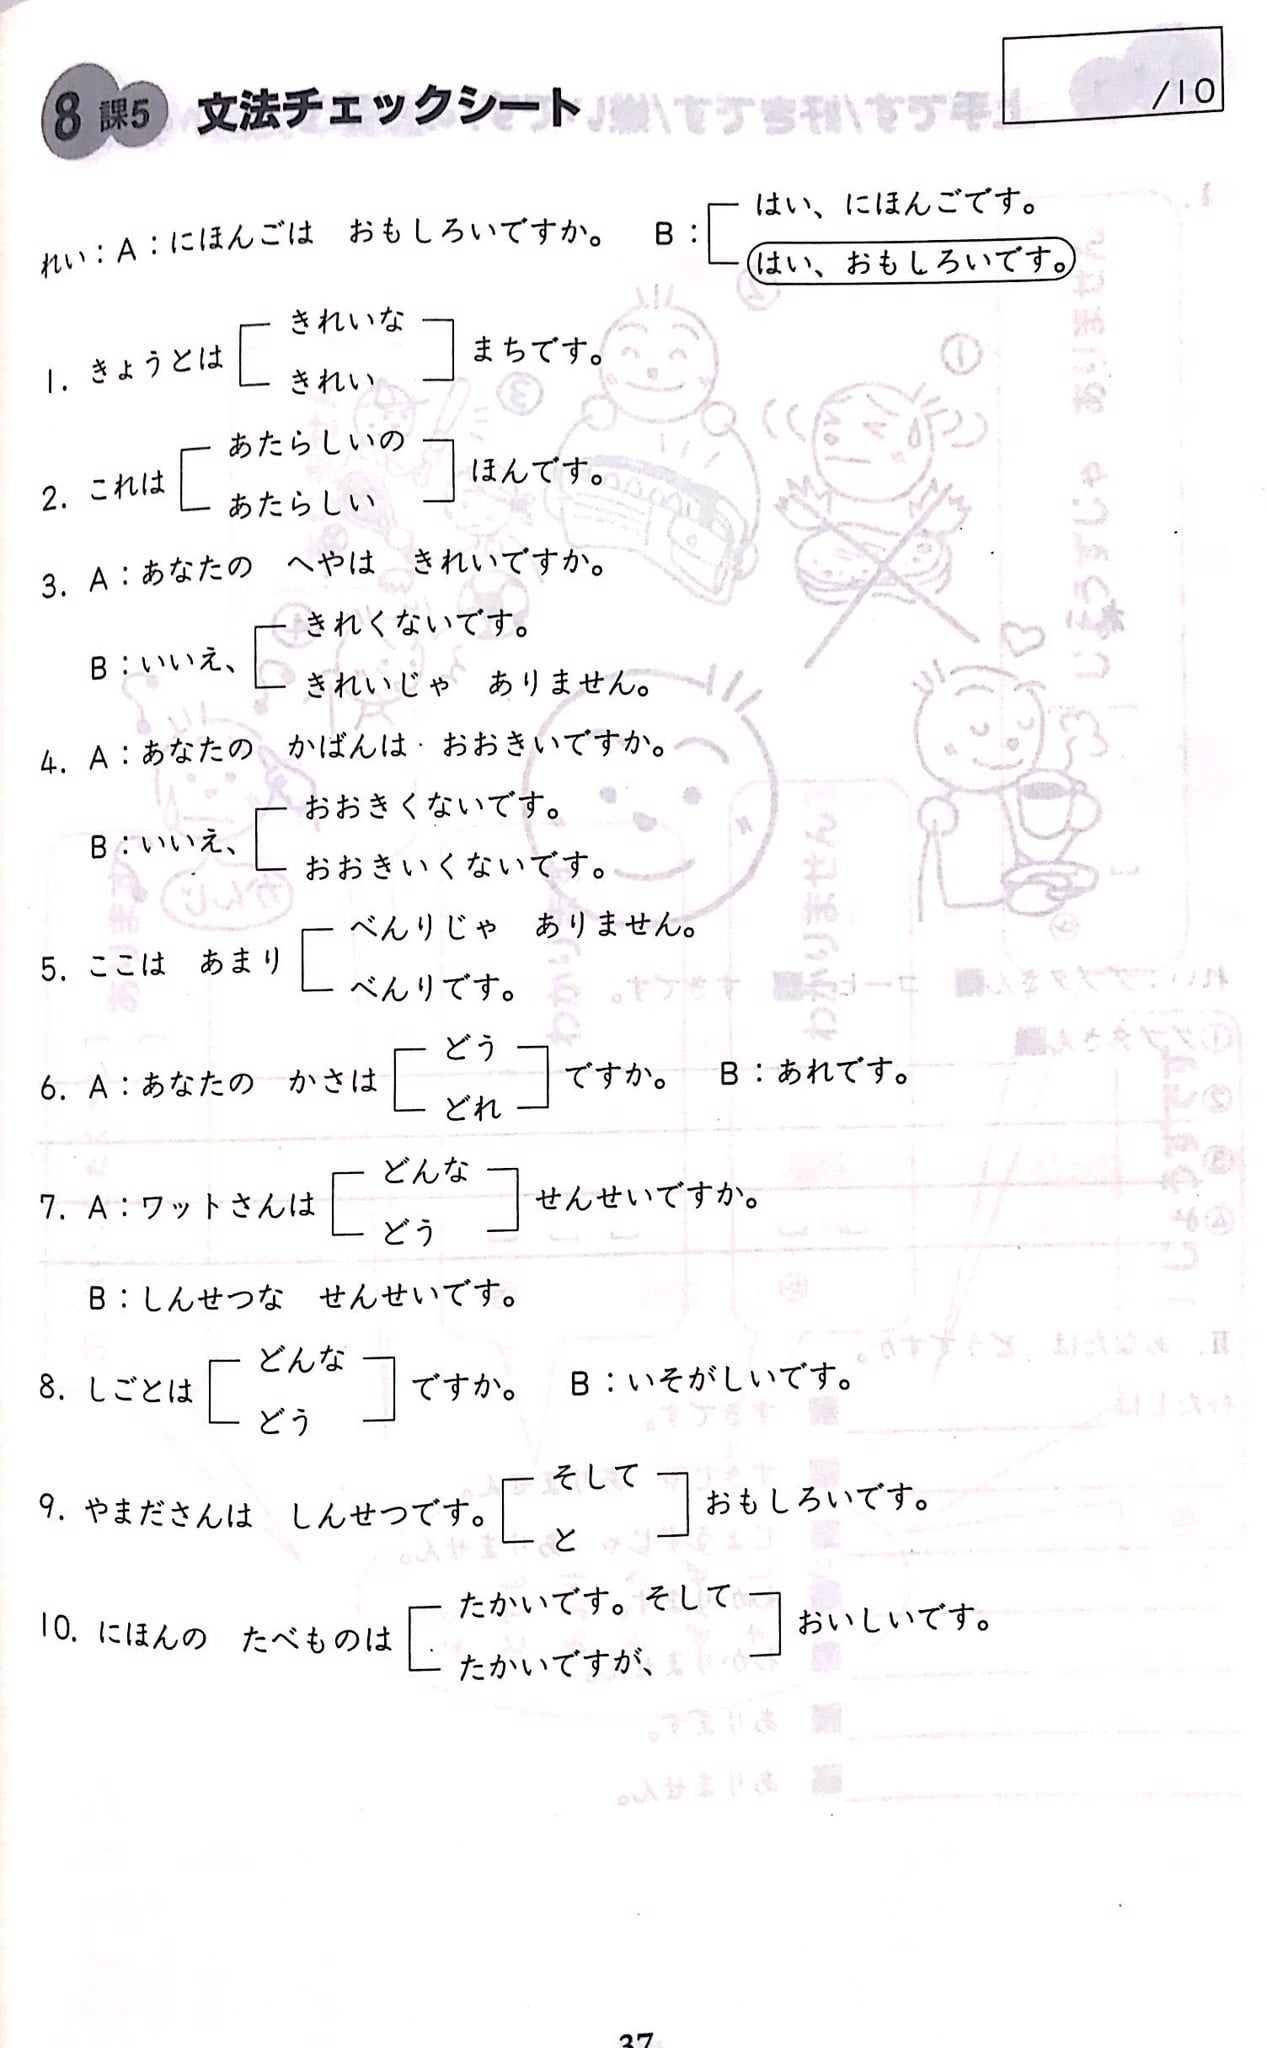 8課5 文法チェックシート
/10
れい：A：にほんごは　おもしろいですか。　B：
はい、にほんごです。
はい、おもしろいです。
1. きょうとは
きれいな
きれい
まちです。
2. これは
あたらしいの
あたらしい
ほんです。
3. A：あなたの　へやは　きれいですか。
B：いいえ、
きれくないです。
きれいじゃ　ありません。
4. A：あなたの　かばんは　おおきいですか。
B：いいえ、
おおきくないです。
おおきいくないです。
5. ここは　あまり
べんりじゃ　ありません。
べんりです。
6. A：あなたの　かさは
どう
どれ
ですか。　B：あれです。
7. A：ワットさんは
どんな
どう
せんせいですか。
B：しんせつな　せんせいです。
8. しごとは
どんな
どう
ですか。　B：いそがしいです。
9. やまださんは　しんせつです。
そして
と
おもしろいです。
10. にほんの　たべものは
たかいです。そして
たかいですが、
おいしいです。
37